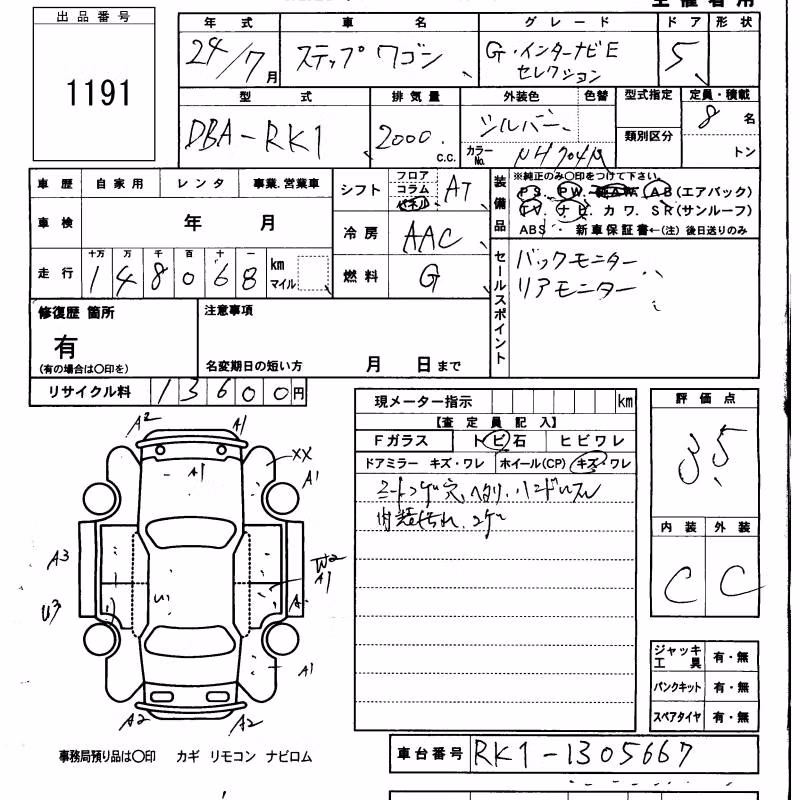 出品番号
1191
年式 車名 グレード ドア 形状
24/7月 ステップワゴン G・インターナビE セレクション 5
型式 排気量 外装色 色替 型式指定 定員・積載
DBA-RK1 2000 c.c. シルバー 類別区分 8名
カラーNo. NH704M トン
車歴 自家用 レンタ 事業.営業車
車検 年 月
走行 十万 万 千 百 十 一
148068 km マイル
シフト フロア コラム パネル AT
冷房 AAC
燃料 G
装備品
※純正のみ〇印をつけて下さい
PS. PW. 純AW. AB(エアバック)
TV. ナビ. カワ. SR(サンルーフ)
ABS ・ 新車保証書←(注)後日送りのみ
セールスポイント
バックモニター
リアモニター
修復歴 箇所
有
(有の場合は〇印を)
注意事項
名変期日の短い方 月 日まで
リサイクル料 13600円
現メーター指示 km
【査定員記入】
Fガラス トビ石 ヒビワレ
ドアミラー キズ・ワレ ホイール(CP) キズ・ワレ
シートコゲ穴、ヘタリ、ハンドルスレ
内装汚れ、コゲ
評価点
3.5
内装 外装
C C
A2 A1
A1
XX
A1
A3
U3
W2
A1
A1
A2 A2
ジャッキ工具 有・無
パンクキット 有・無
スペアタイヤ 有・無
事務局預り品は〇印 カギ リモコン ナビロム
車台番号 RK1-1305667